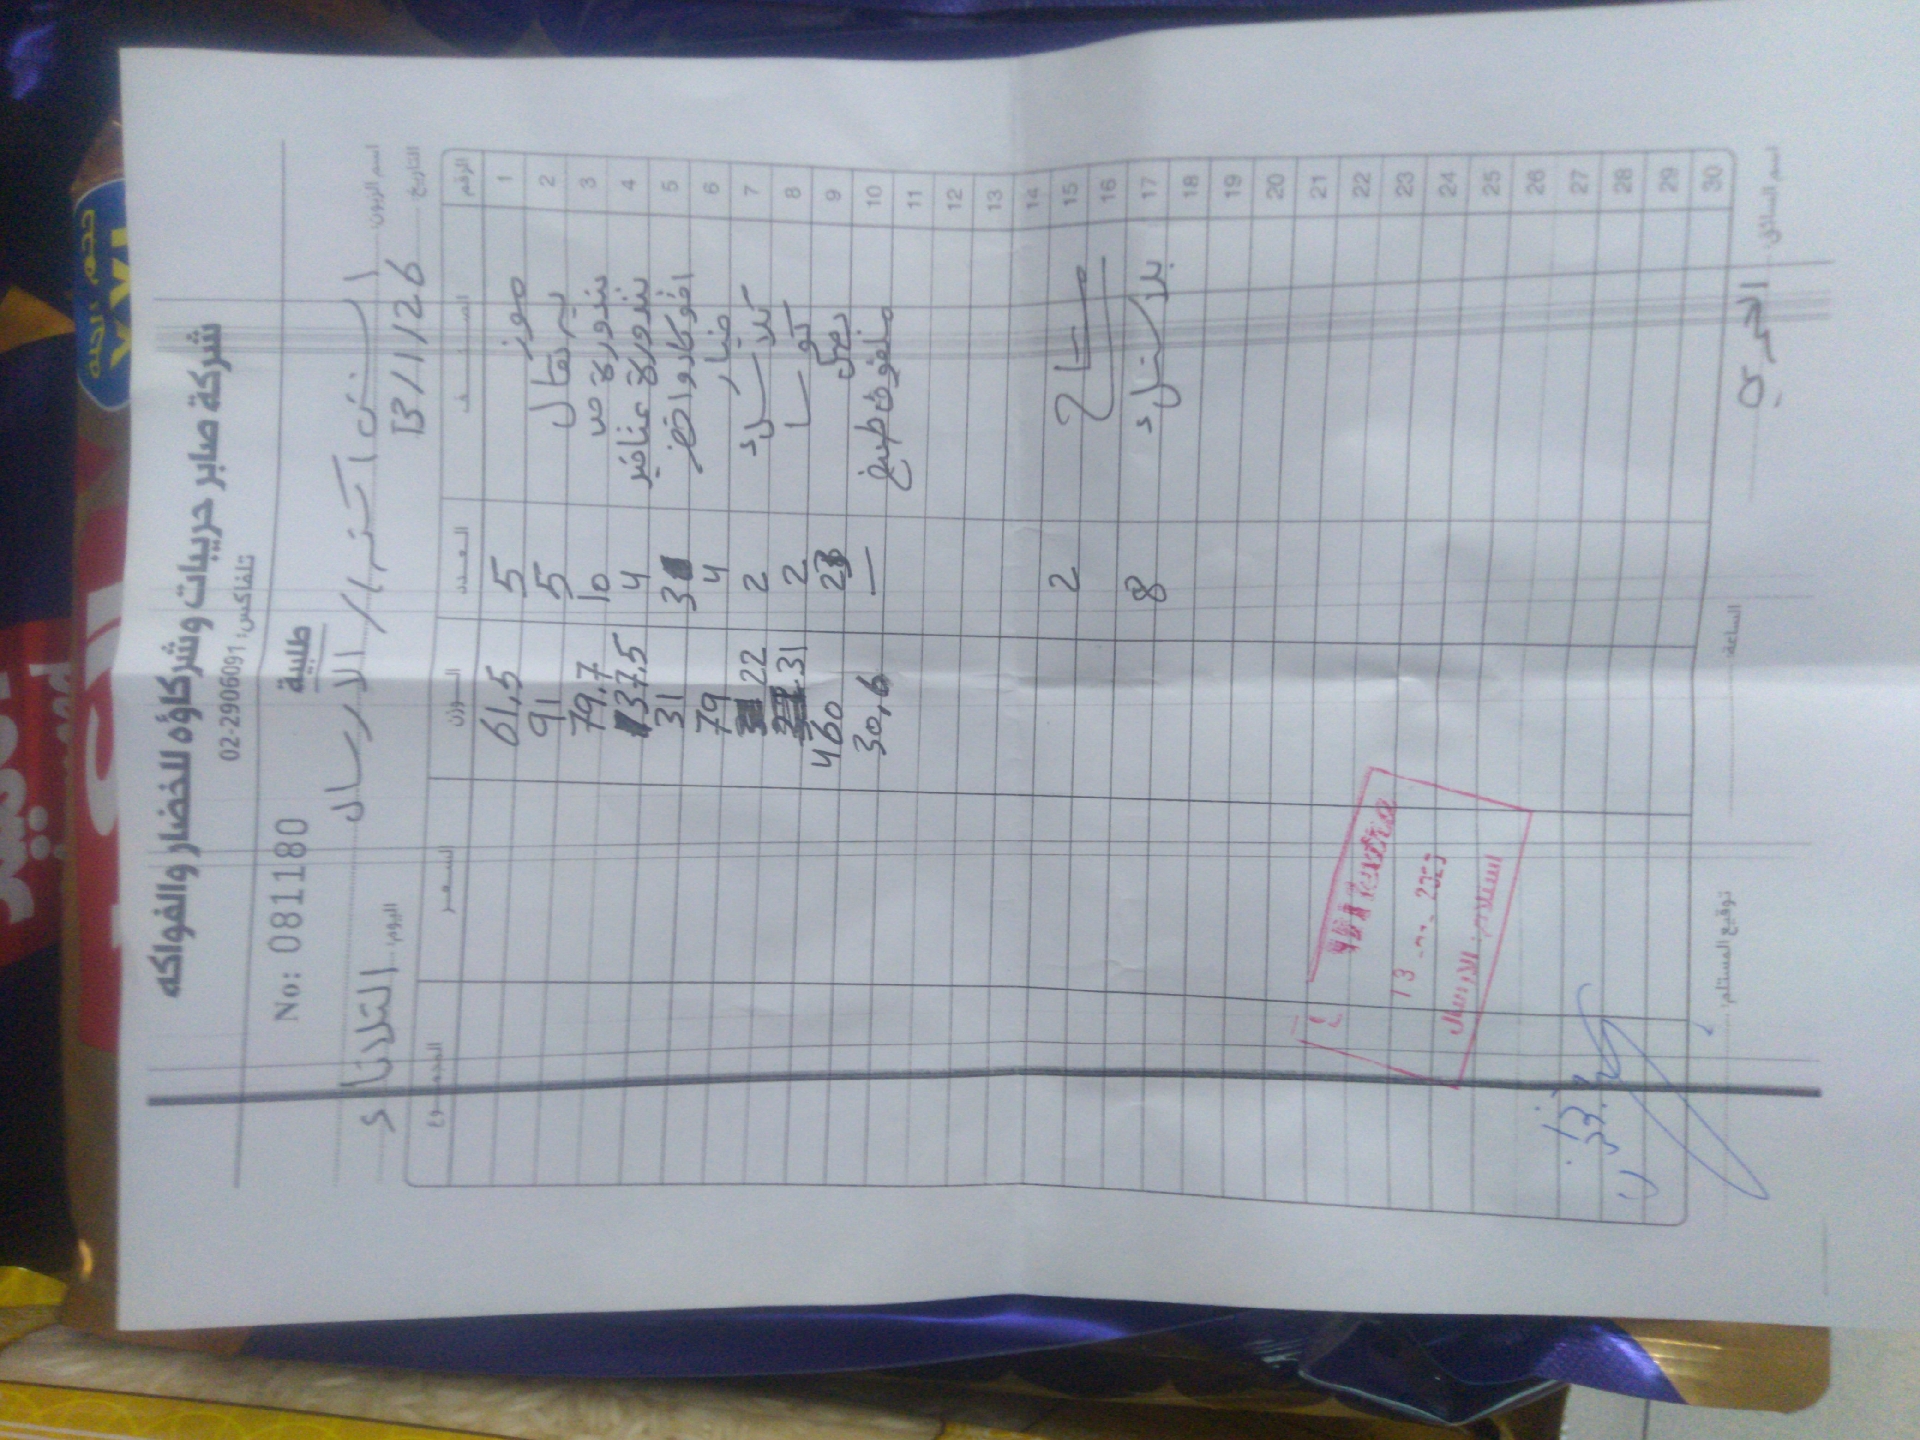 شركة صابر حريبات وشركاؤه للخضار والفواكه
تلفاكس: 02-2906091
No: 081180
طلبية
اسم الزبون
الارسال
اليوم: الثلاثاء
التاريخ 13/1/26
الرقم الصنف العدد الوزن السعر المجموع
1 موز 5 61,5
2 برتقال 5 91
3 بندورة ص 10 79.7
4 بندورة عناقيد 4 37,5
5 افوكادو اخضر 3 31
6 خيار 4 79
7 2 22
8 كوسا 2 31
9 بصل 23 460
10 ملفوف طبيخ — 30,6
11
12
13
14
15 2
16
17 8
18
19
20
21
22
23
24
25
26
27
28
29
30
الارسال
اسم السائق
الساعة:
توقيع المستلم: